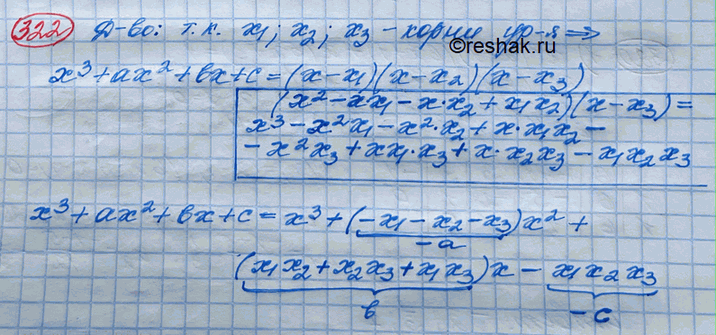 322 Д-во: т.к. x₁; x₂; x₃ - корни ур-я ⇒
©reshak.ru
x³+ax²+bx+c=(x-x₁)(x-x₂)(x-x₃)
(x²-x·x₁-x·x₂+x₁x₂)(x-x₃)=
x³-x²x₁-x²·x₂+x·x₁x₂-
-x²x₃+xx₁·x₃+x·x₂x₃-x₁x₂x₃
x³+ax²+bx+c=x³+(-x₁-x₂-x₃)x²+
-a
(x₁x₂+x₂x₃+x₁x₃)x-x₁x₂x₃
b -c